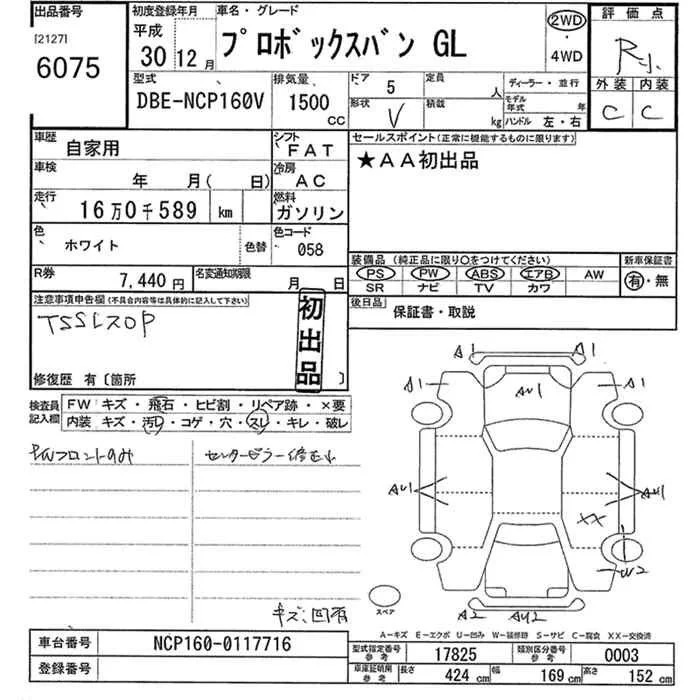 出品番号
[2127]
6075
初度登録年月
平成
30 12月
車名・グレード
プロボックスバン GL
2WD
・
4WD
評価点
R小
外装 内装
C C
型式
DBE-NCP160V
排気量
1500
CC
ドア 5
形状 V
定員 人
積載 kg
ディーラー・並行
モデル年式 年
ハンドル 左・右
車歴 自家用
シフト FAT
車検 年 月( 日)
冷房 AC
走行 16万0千589 km
燃料 ガソリン
色 ホワイト 色替
色コード 058
R券 7,440円
名変通知期限 月 日
セールスポイント(正常に機能するものに限ります)
★AA初出品
装備品 (純正品に限り○をつけてください)
PS PW ABS エアB AW
SR ナビ TV カワ
新車保証書
有・無
後日品 保証書・取説
注意事項申告欄(不具合内容等は具体的に記入して下さい)
TSSレスOP
初出品
修復歴 有〔箇所 〕
検査員記入欄
FW キズ・飛石・ヒビ割・リペア跡・×要
内装 キズ・汚れ・コゲ・穴・スレ・キレ・破レ
PWフロントのみ
センターピラー修正小
キズ:凹有
A1 A1
A1 AU1 A1
AU1 AU1
XX
W2
A2 AU2
スペア
A-キズ E-エクボ U-凹み W-補修跡 S-サビ C-腐食 XX-交換済
車台番号 NCP160-0117716
登録番号
型式指定番号 参考 17825
類別区分番号 参考 0003
車庫証明用 参考 長さ 424cm 幅 169cm 高さ 152cm